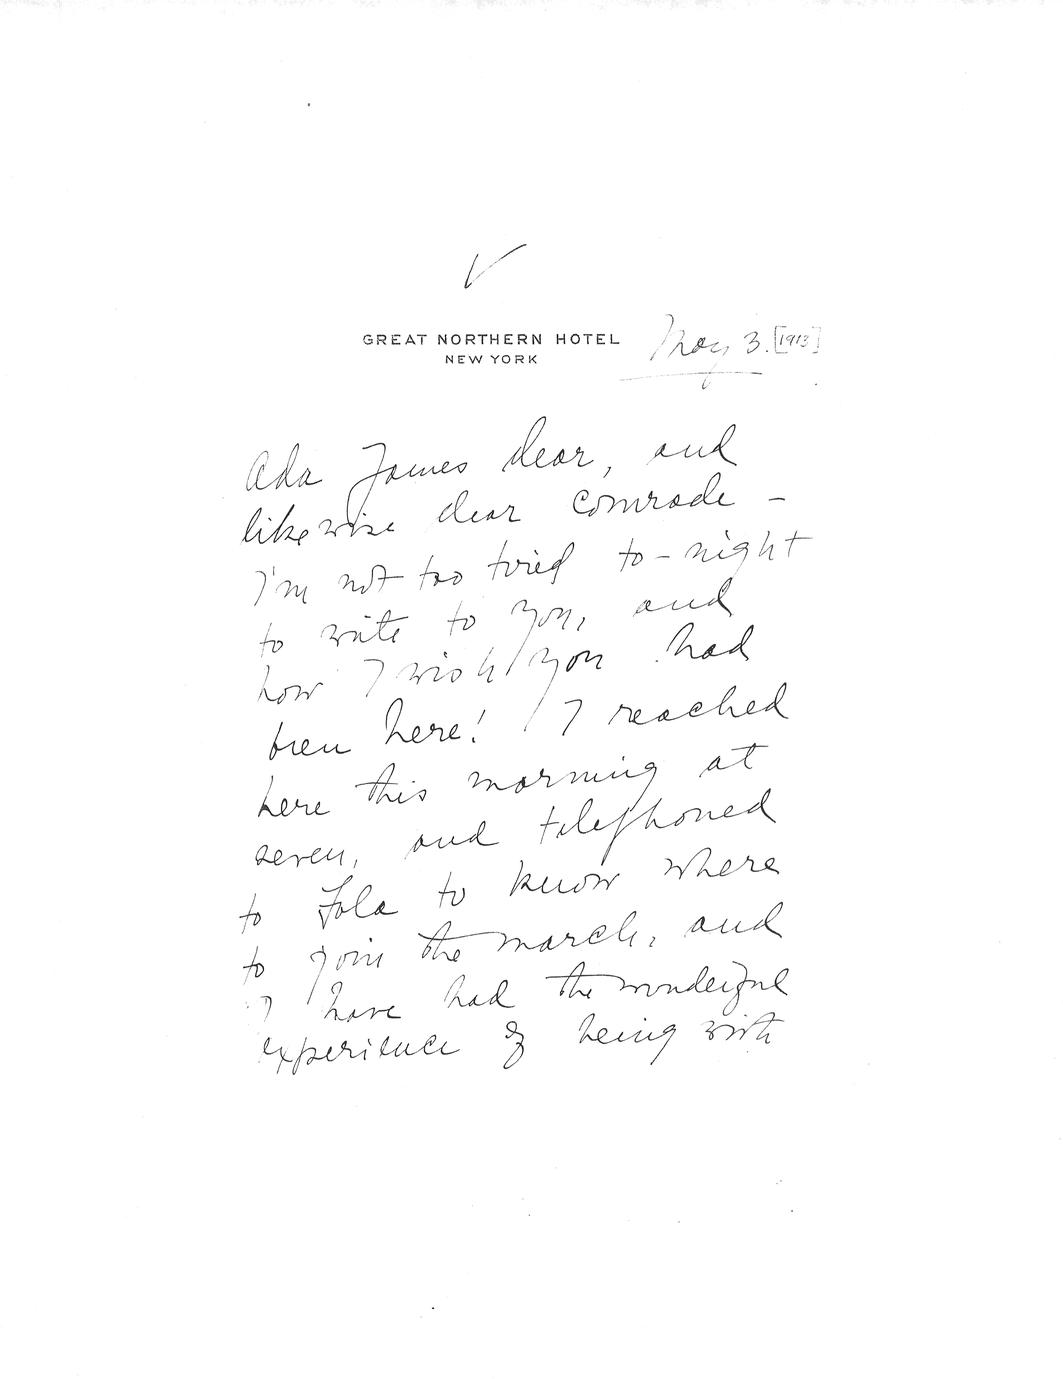 GREAT NORTHERN HOTEL
NEW YORK
May 3. [1913]
Ada James dear, and
likewise dear Comrade -
I'm not too tired to-night
to write to you, and
how I wish you had
been here! I reached
here this morning at
seven, and telephoned
to Fola to know where
to join the march, and
I have had the wonderful
experience of being with